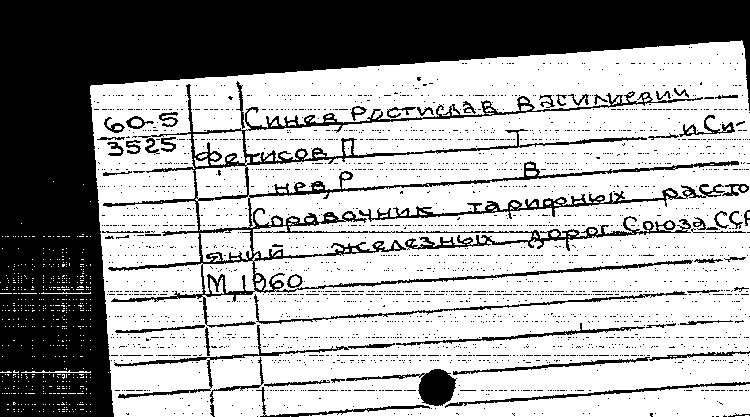 60-5
3525
Синев, Ростислав Василиевич
Фетисов, П Т и Си-
нев, Р В
Справочник тарифных расстo
яний железных дорог Союза ССР
М, 1960